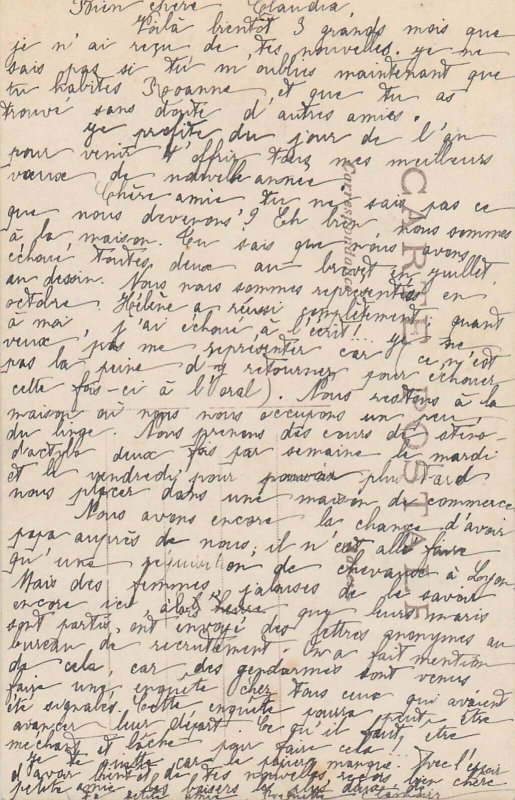 Bien chère Claudia
Voilà bientôt 3 grands mois que
je n'ai reçu de tes nouvelles. je ne
sais pas si tu m'oublies maintenant que
tu habites Roanne, et que tu as
trouvé sans doute d'autres amies.
Je profite du jour de l'an
pour venir t'offrir tous mes meilleurs
vœux de nouvelle année
Chère amie tu ne sais pas ce
que nous devenons? Eh bien nous sommes
à la maison. Tu sais que nous avons
échoué toutes deux au brevet en juillet,
au dessin. Nous nous sommes représentées en
octobre, Hélène a réussi complètement, quant
à moi, j'ai échoué à l'écrit!... je ne
veux pas me représenter car ce n'est
pas la peine d'y retourner pour échouer
cette fois-ci à l'oral). Nous restons à la
maison où nous nous occupons un peu
du linge. Nous prenons des cours de sténo-
dactylo deux fois par semaine le mardi
et le vendredi pour pouvoir plus tard
nous placer dans une maison de commerce
Nous avons encore la chance d'avoir
papa auprès de nous; il n'est allé faire
qu'une réquisition de chevaux à Lyon.
Mais des femmes jalouses de le savoir
encore ici, à la que leurs maris
sont partis, ont envoyé des lettres anonymes au
bureau de recrutement. On a fait mention
de cela, car des gendarmes sont venus
faire une enquête chez tous ceux qui avaient
été signalés. Cette enquête pourra peut être
avancer leur départ. Ce qu'il faut être
méchant et lâche pour faire cela!...
Je te quitte car le papier manque. Avec l'espoir
d'avoir bientôt de tes nouvelles, reçois bien chère
petite amie les baisers les plus doux de
ta petite amie
CARTE POSTALE
Correspondance